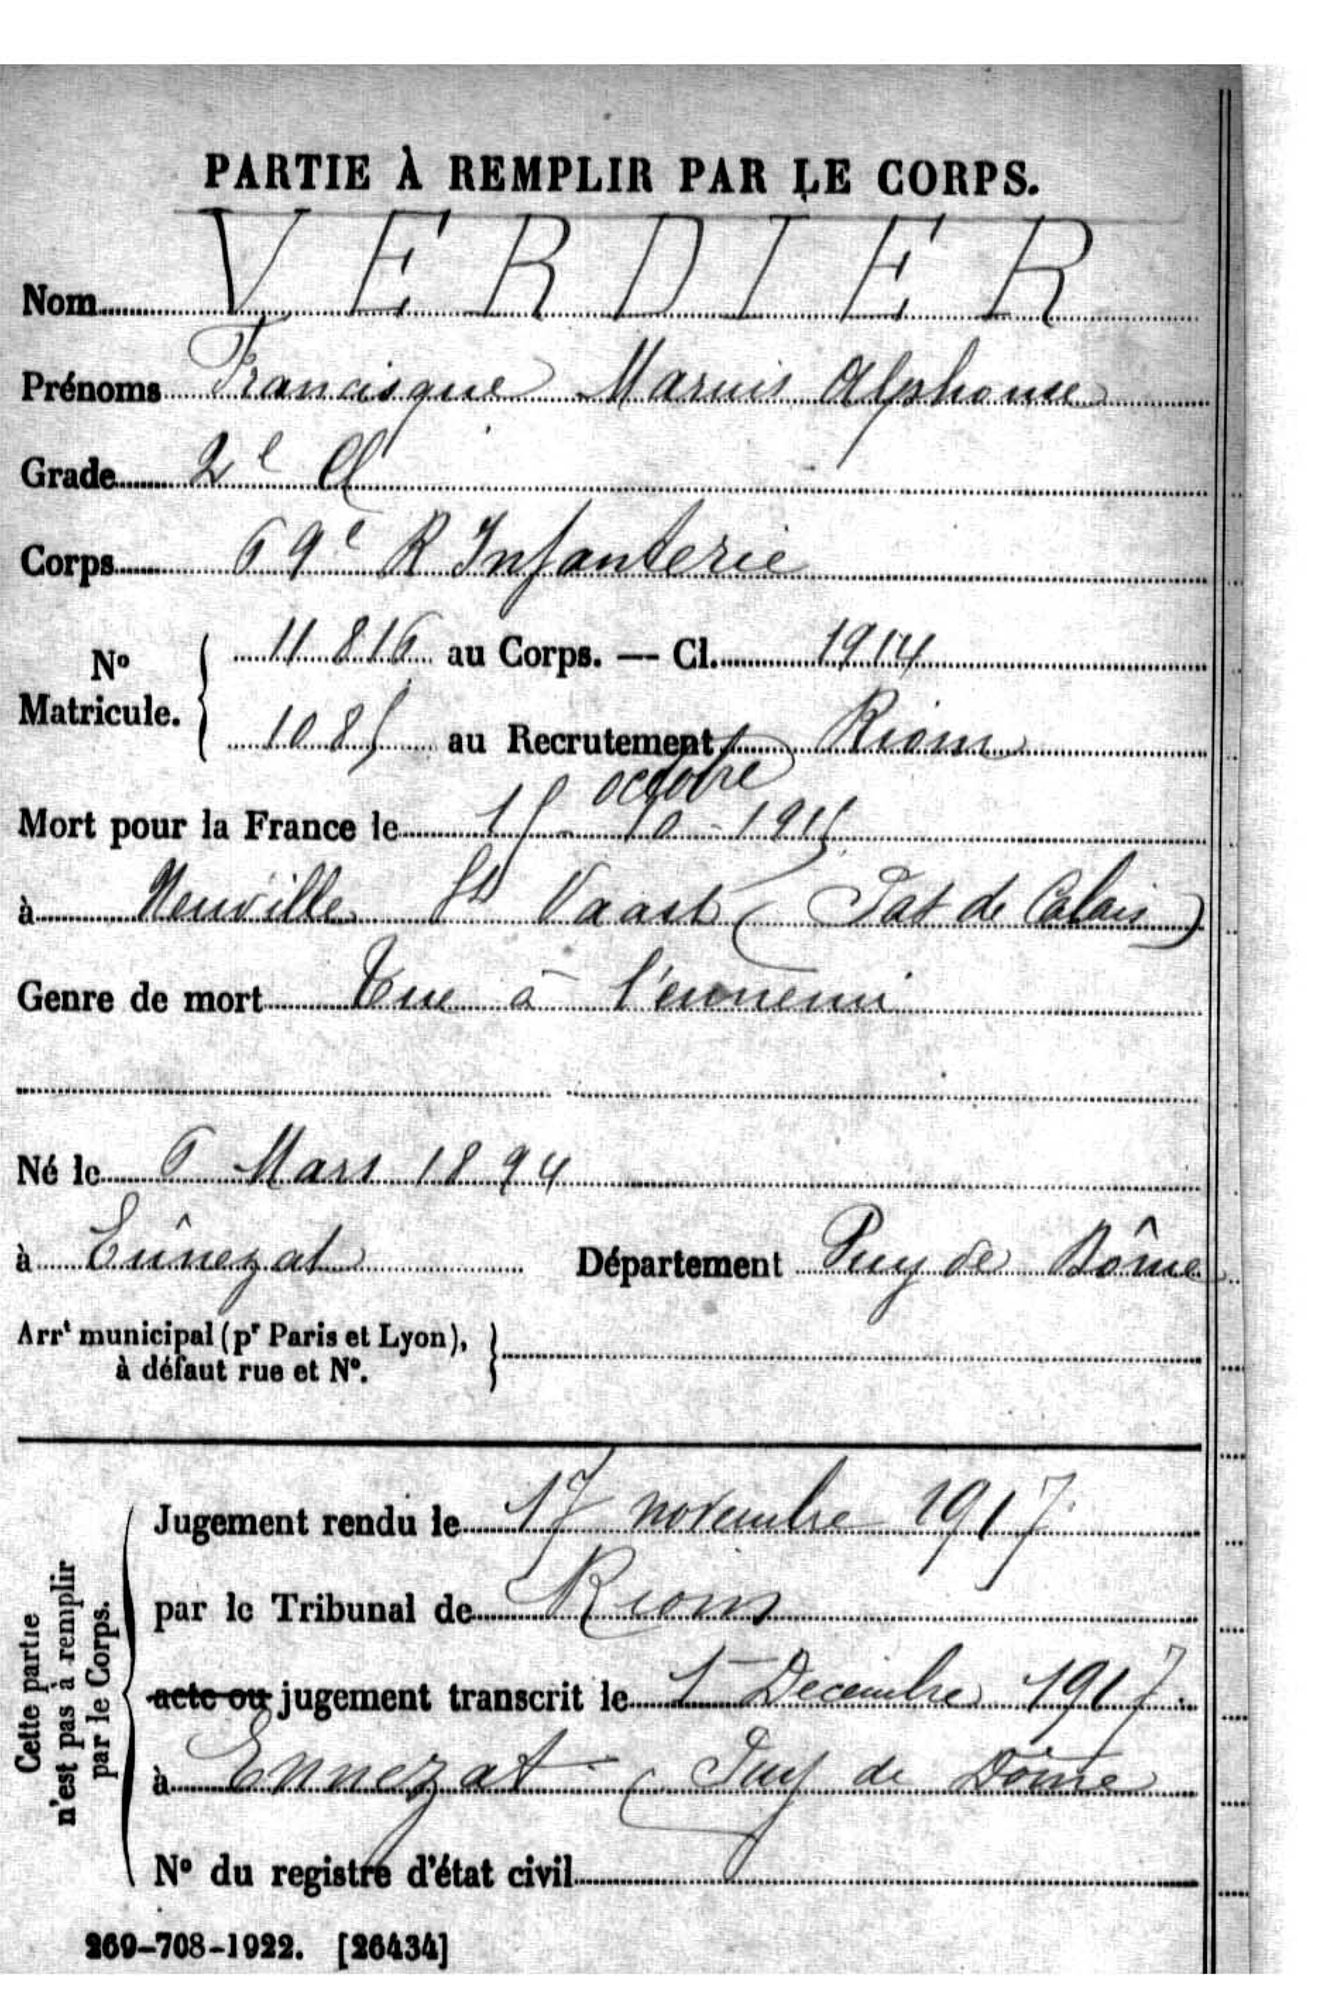 PARTIE À REMPLIR PAR LE CORPS.
Nom VERDIER
Prénoms Francisque Marius Alphonse
Grade 2e Cl
Corps 69e R Infanterie
No Matricule. { 11816 au Corps. — Cl. 1914
1085 au Recrutement Riom
octobre
Mort pour la France le 15 - 10 - 1915
à Neuville St Vaast (Pas de Calais)
Genre de mort Tué à l'ennemi
Né le 6 Mars 1894
à Ennezat Département Puy de Dôme
Arrt municipal (pr Paris et Lyon), }
à défaut rue et No.
Cette partie
n'est pas à remplir
par le Corps.
Jugement rendu le 17 novembre 1917
par le Tribunal de Riom
acte ou jugement transcrit le 1 Decembre 1917.
à Ennezat (Puy de Dôme
No du registre d'état civil
269-708-1922. [26434]